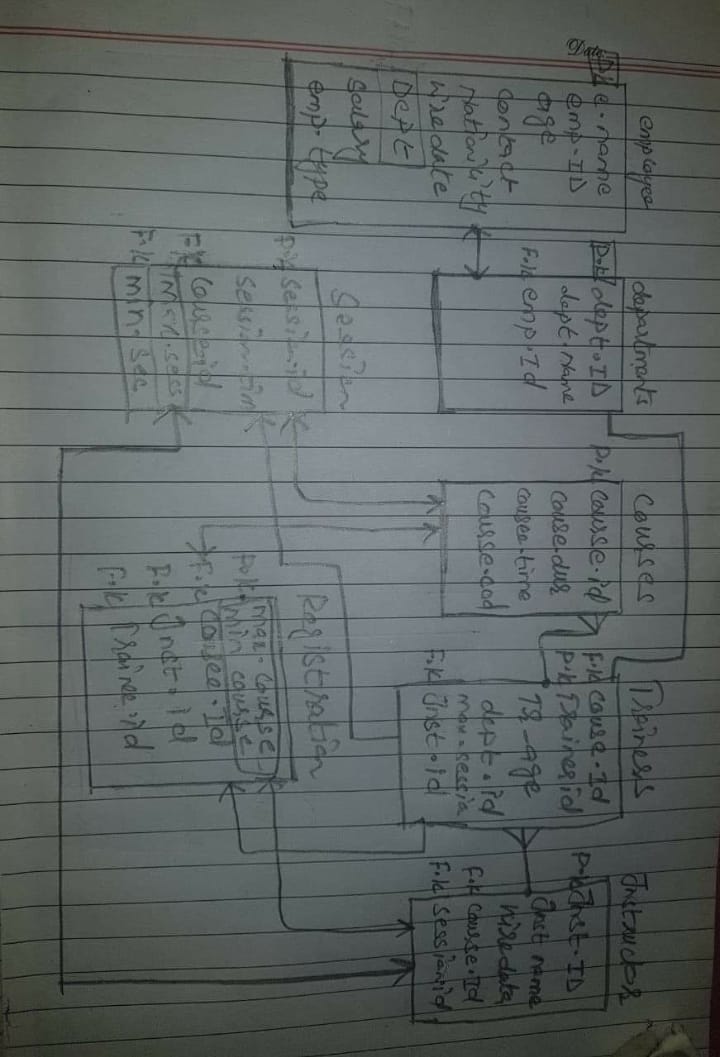 employee
P.k e.name
emp.ID
age
contact
Nationility
hiredate
Dept
salary
emp.type
departments
P.k dept.ID
dept.name
F.k emp.Id
Courses
P.k course.id
course.dur
coursee.time
course.cod
Trainess
F.k couse.Id
P.k Trainerid
TR-age
dept.id
max.sessia
F.k Inst.id
Instructor
P.k Inst.ID
Inst name
hiredata
F.k course.Id
F.k session.id
Session
P.k session.id
session.tim
F.k course.id
max.sess
F.k min.sec
Registration
P.k max.course
min course
F.k Id
F.k Inst.id
F.k Trainee.id